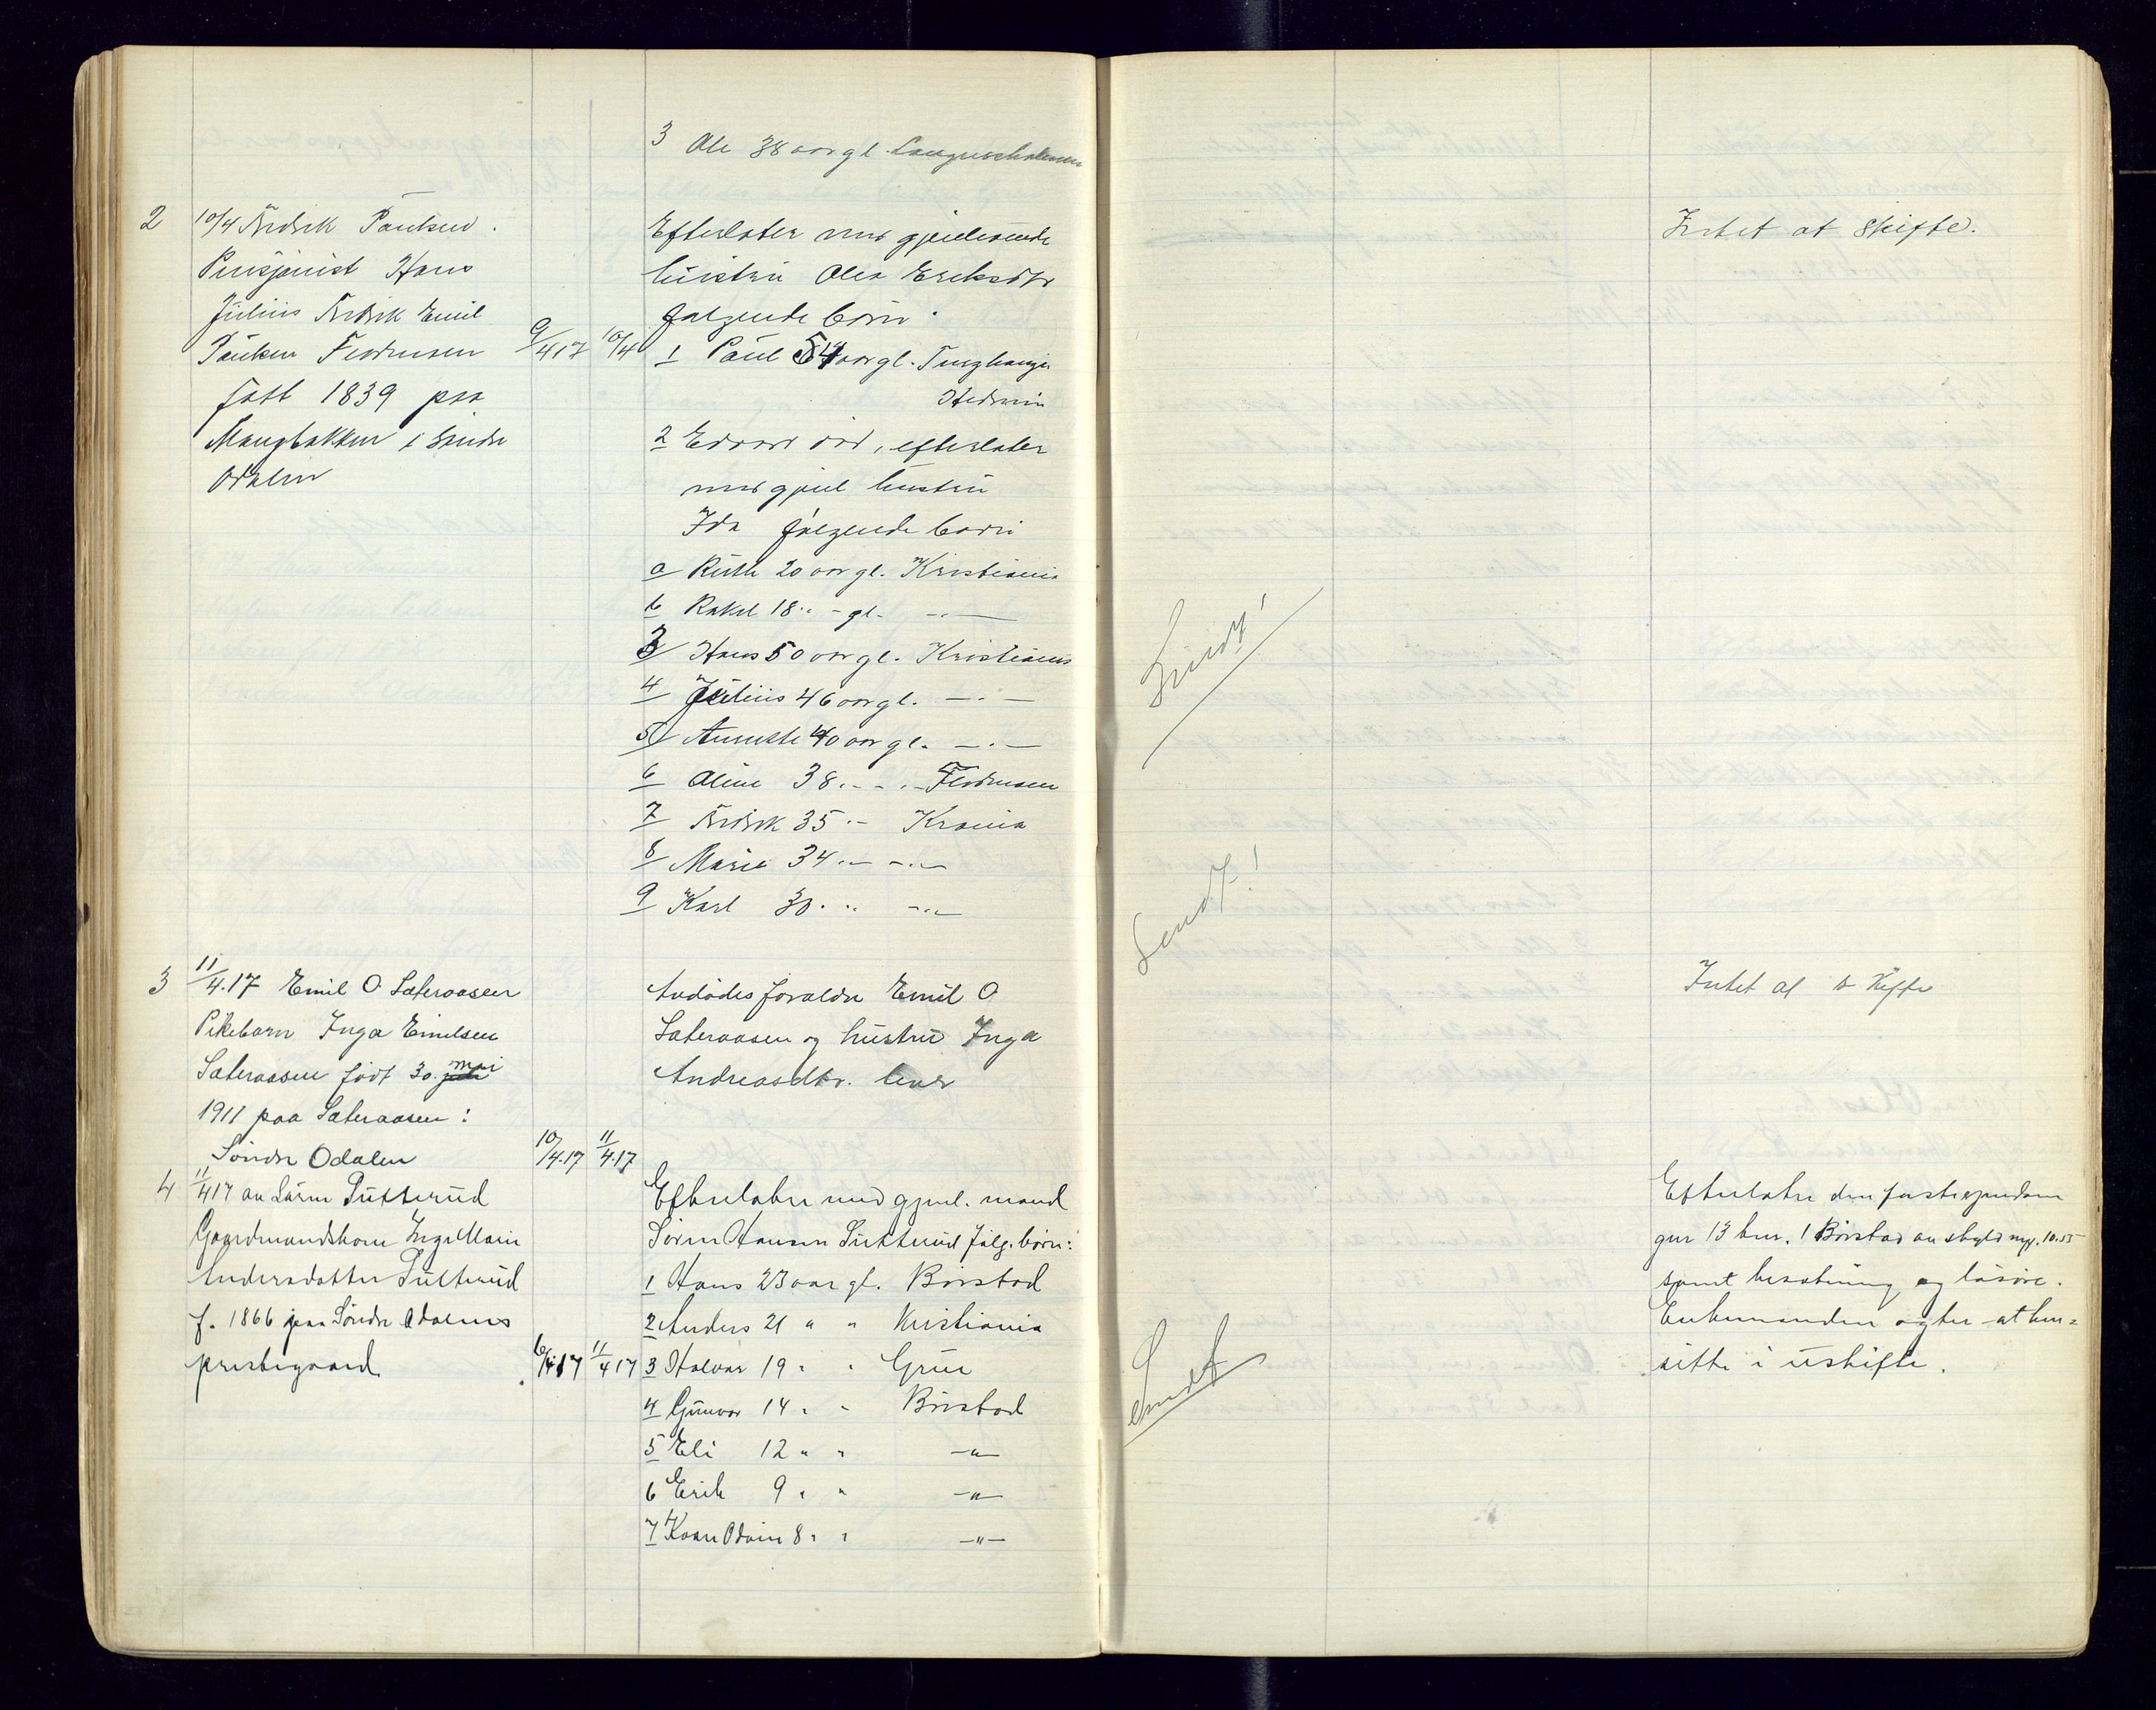 3 Ole 38 aar gl.
2 10/4 Fredrik Paulsen.
Pensjonist Hans
Julius Fredrik Emil
Paulsen Flodmosen 9/4 17 10/4
født 1839 paa
Maugbakken i Søndre
Odalen
Efterlater med gjenlevende
hustru Olea Eriksdtr
følgende børn
1 Paul 54 aar gl.
2 Edvard død, efterlater
med gjenl hustru
Ida følgende børn
a Ruth 20 aar gl. Kristiania
b Rakel 18 " - gl. - " -
3 Hans 50 aar gl. Kristiania
4 Julius 46 aar gl. - " -
5 Annette 40 aar gl. - " -
6 Oline 38 " - " Flodmosen
7 Fredrik 35 " - Krania
8 Marie 34 " - - " -
9 Karl 30 " " - " -
Intet at skifte.
Sendt!
3 11/4.17 Emil O. Sæteraasen
Pikebarn Inga Emilsen
Sæteraasen født 30. juli mai
1911 paa Sæteraasen i
Søndre Odalen 10/4.17 11/4.17
Avdødes foreldre Emil O
Sæteraasen og hustru Inga
Andreasdtr. lever
Intet at skifte
Sendt!
4 11/4 17 av Søren Sutterud
Gaardmandskone Inge Marie
Andersdatter Sutterud
f. 1866 paa Søndre Odalens
prestegaard 6/4 17 11/4 17
Efterlater med gjenl. mand
Søren Hansen Sutterud følg. børn:
1 Hans 23 aar gl. Børstad
2 Anders 21 " " Kristiania
3 Halvar 19 " " Grue
4 Gunvor 14 " " Børstad
5 Eli 12 " " - " -
6 Erik 9 " " - " -
7 Kaare Odvin 8 " " - " -
Efterlater den faste eiendom
gnr 13 bnr. 1 Børstad av skyld
samt besætning og løsøre.
Enkemanden agter at hen=
sitte i uskifte.
Sendt